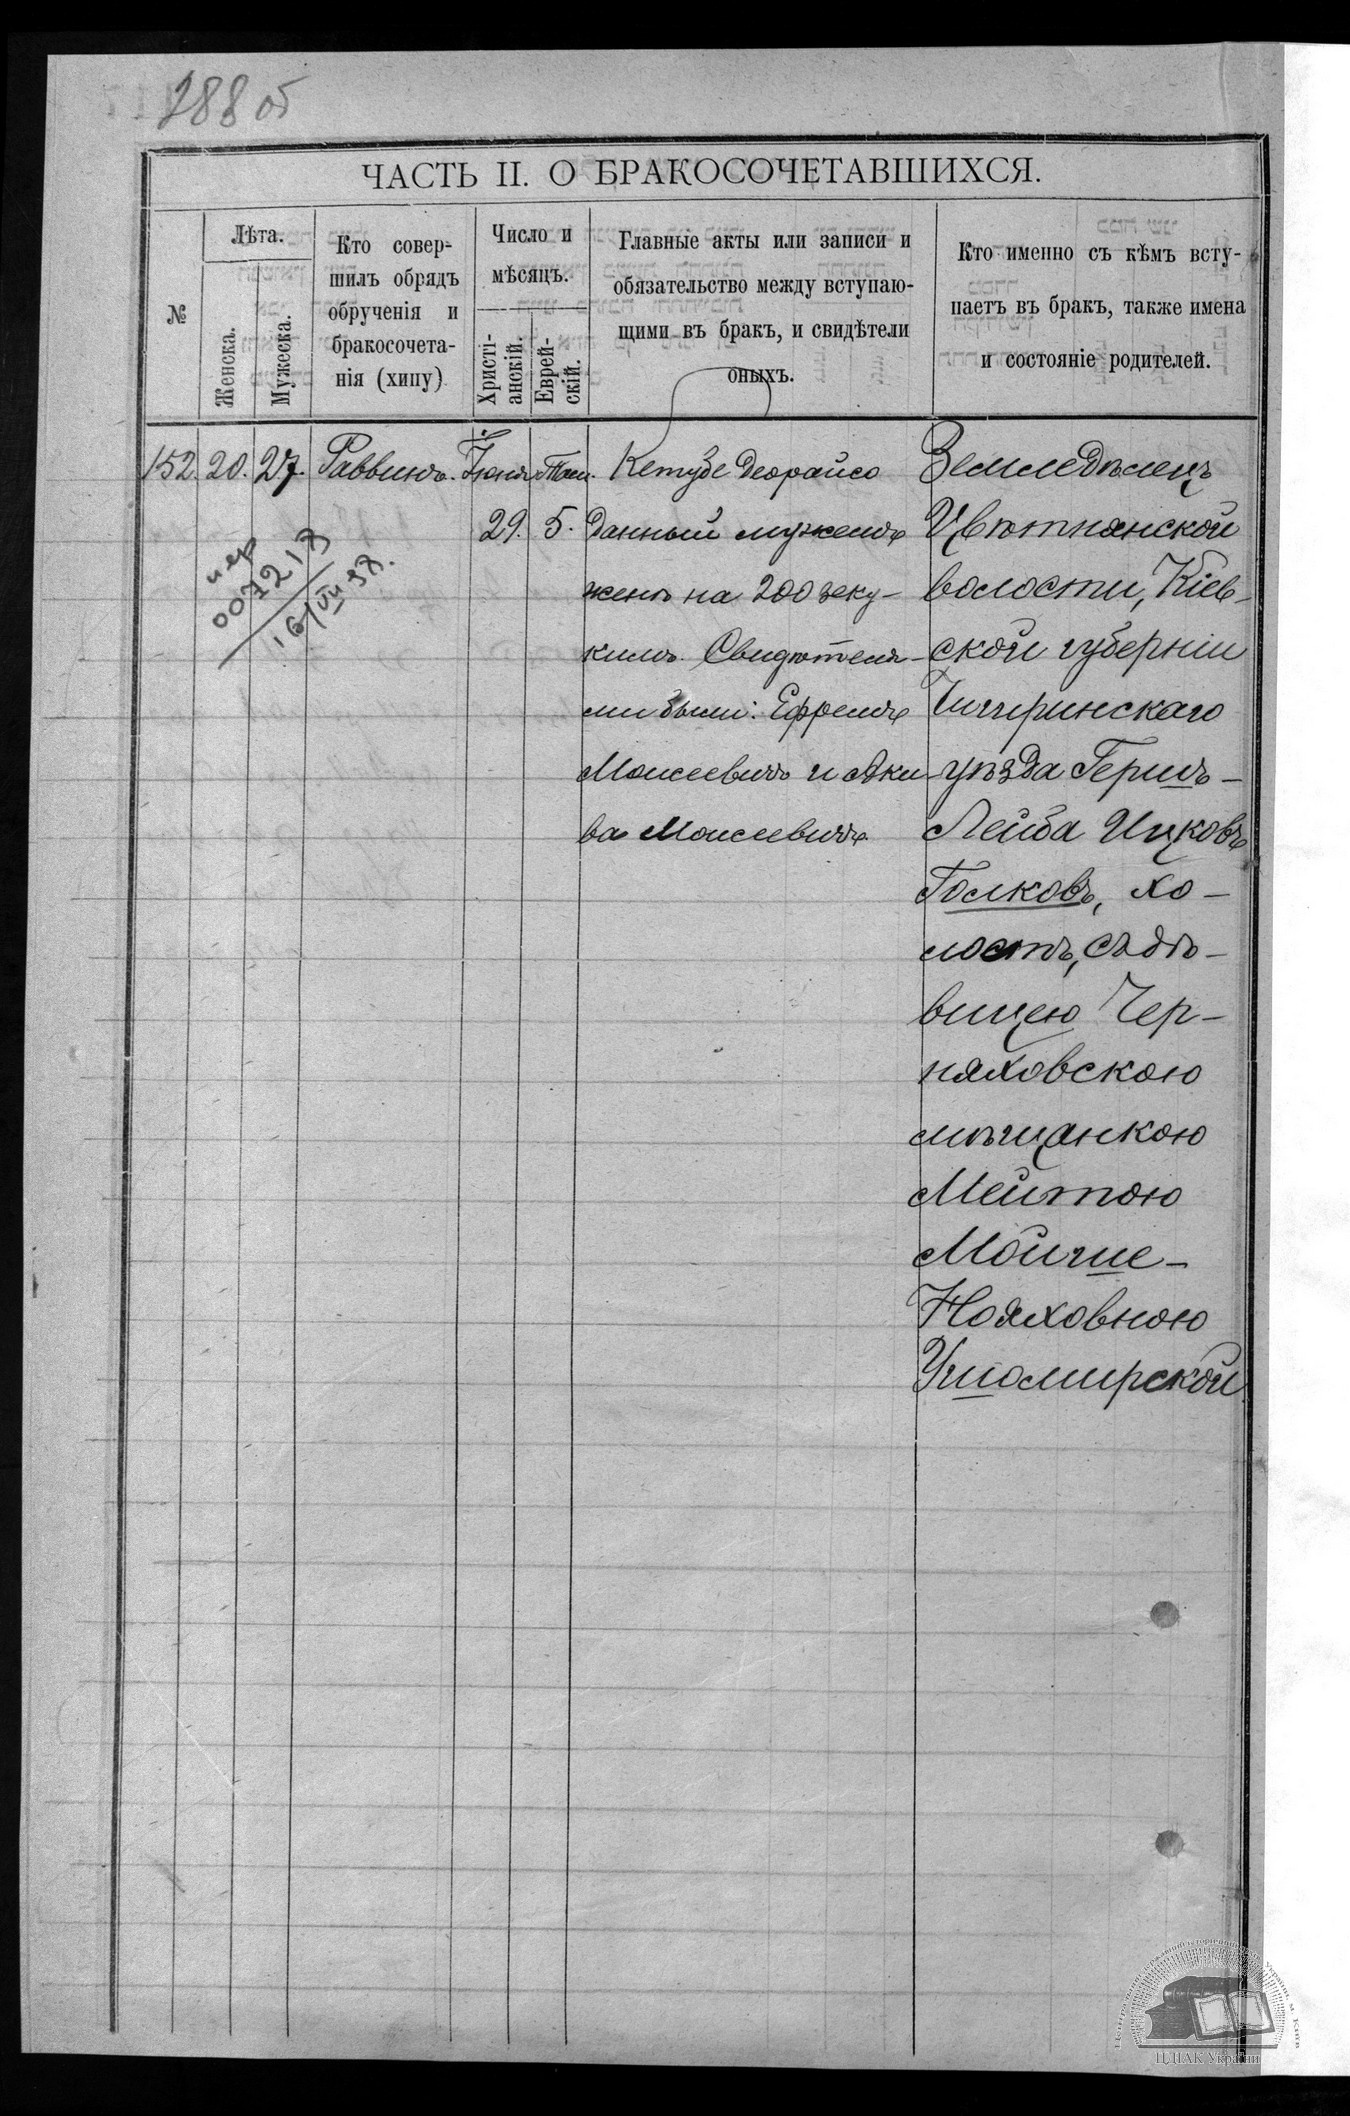 288 об
ЧАСТЬ II. О БРАКОСОЧЕТАВШИХСЯ.
№
Лѣта.
Женска.
Мужеска.
Кто совер-
шилъ обрядъ
обрученія и
бракосочета-
нія (хипу)
Число и
мѣсяцъ.
Христі-
анскій.
Еврей-
скій.
Главные акты или записи и
обязательство между вступаю-
щими въ бракъ, и свидѣтели
оныхъ.
Кто именно съ кѣмъ всту-
паетъ въ бракъ, также имена
и состояніе родителей.
152. 20. 27. Раввинъ. Іюня Там.
29. 5.
Кетубе Деорайсо
данный мужемъ
женѣ на 200 зеку-
кимъ. Свидѣтеля-
ми были: Ефремъ
Моисеевичъ и Аки
ва Моисеевичъ
Земледѣлецъ
Цвѣтнянской
волости, Кіев-
ской губерніи
Чигиринскаго
уѣзда Гершъ-
Лейба Ицковъ
Голковъ, хо-
лостъ, съ дѣ-
вицею Чер-
няховскою
мѣщанкою
Мейтою
Мойше-
Нояховною
Ушомирской
007217
16/VII 37.
ЦДІАК України